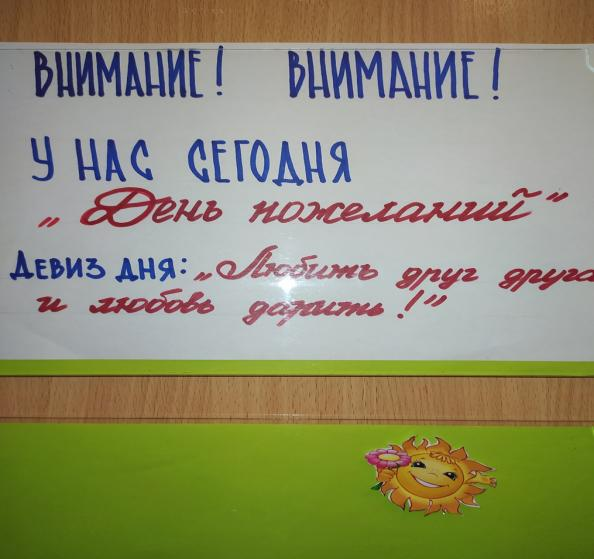 ВНИМАНИЕ! ВНИМАНИЕ!
У НАС СЕГОДНЯ
„День пожеланий”
ДЕВИЗ ДНЯ: „Любить друг друга
и любовь дарить!”